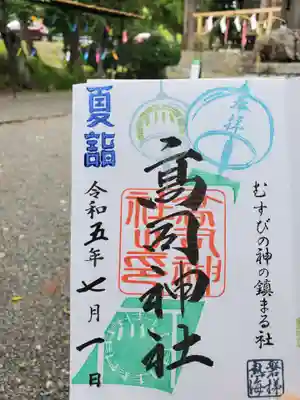 むすびの神の鎮まる社
磐梯
熱海
高司神社
夏詣
令和五年七月一日